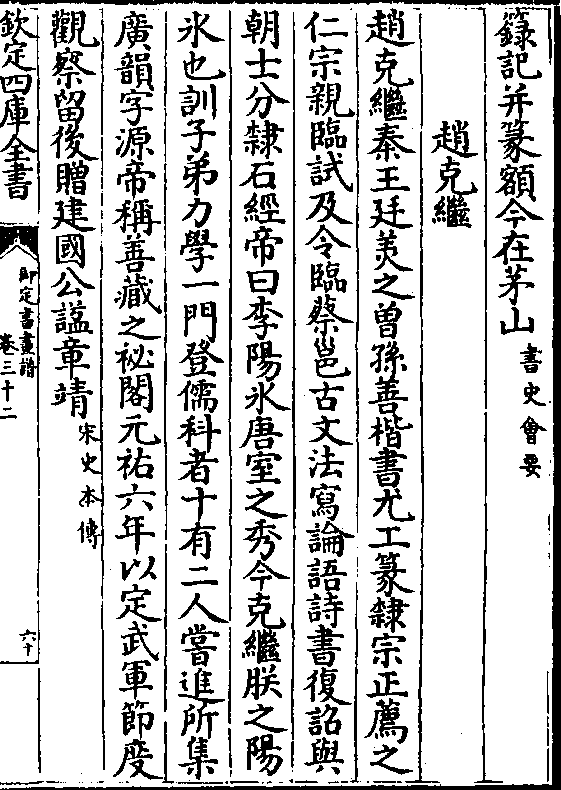 籙記并篆額今在茅山書史會要
趙克繼
趙克繼秦王廷羙之曽孫善楷書尤工篆隸宗正薦之
仁宗親臨試及令臨蔡邕古文法寫論語詩書復詔與
朝士分隸石經帝曰李陽氷唐室之秀今克繼朕之陽
氷也訓子弟力學一門登儒科者十有二人嘗進所集
廣韻字源帝稱善藏之祕閣元祐六年以定武軍節度
觀察留後贈建國公諡章靖宋史本傳
欽定四庫全書
御定書畫譜
卷三十二
六十